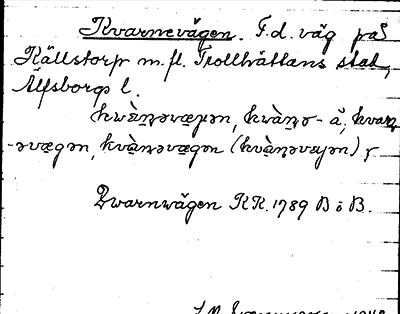 Kvarnevägen. F.d. väg på
Källstorp m.fl. Trollhättans stad,
Älfsborgs l.
kwànəvæɲən, kvànə- ä, kvarn
-əvægən, kvànəvægən (kvànəvæjən) r
Qwarnwägen KK. 1789 B ö B.